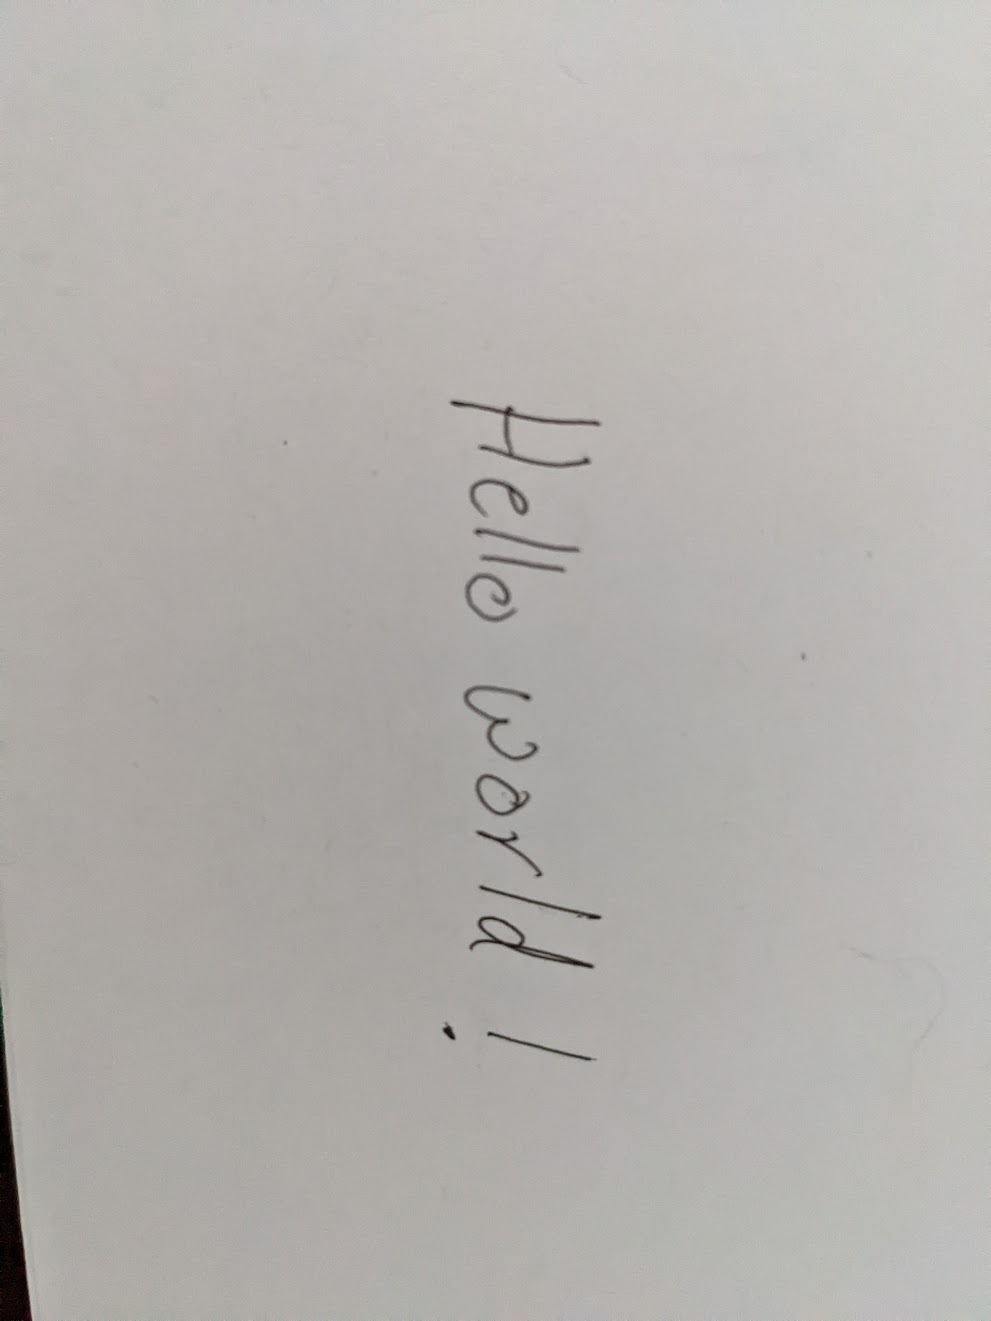 Hello world !